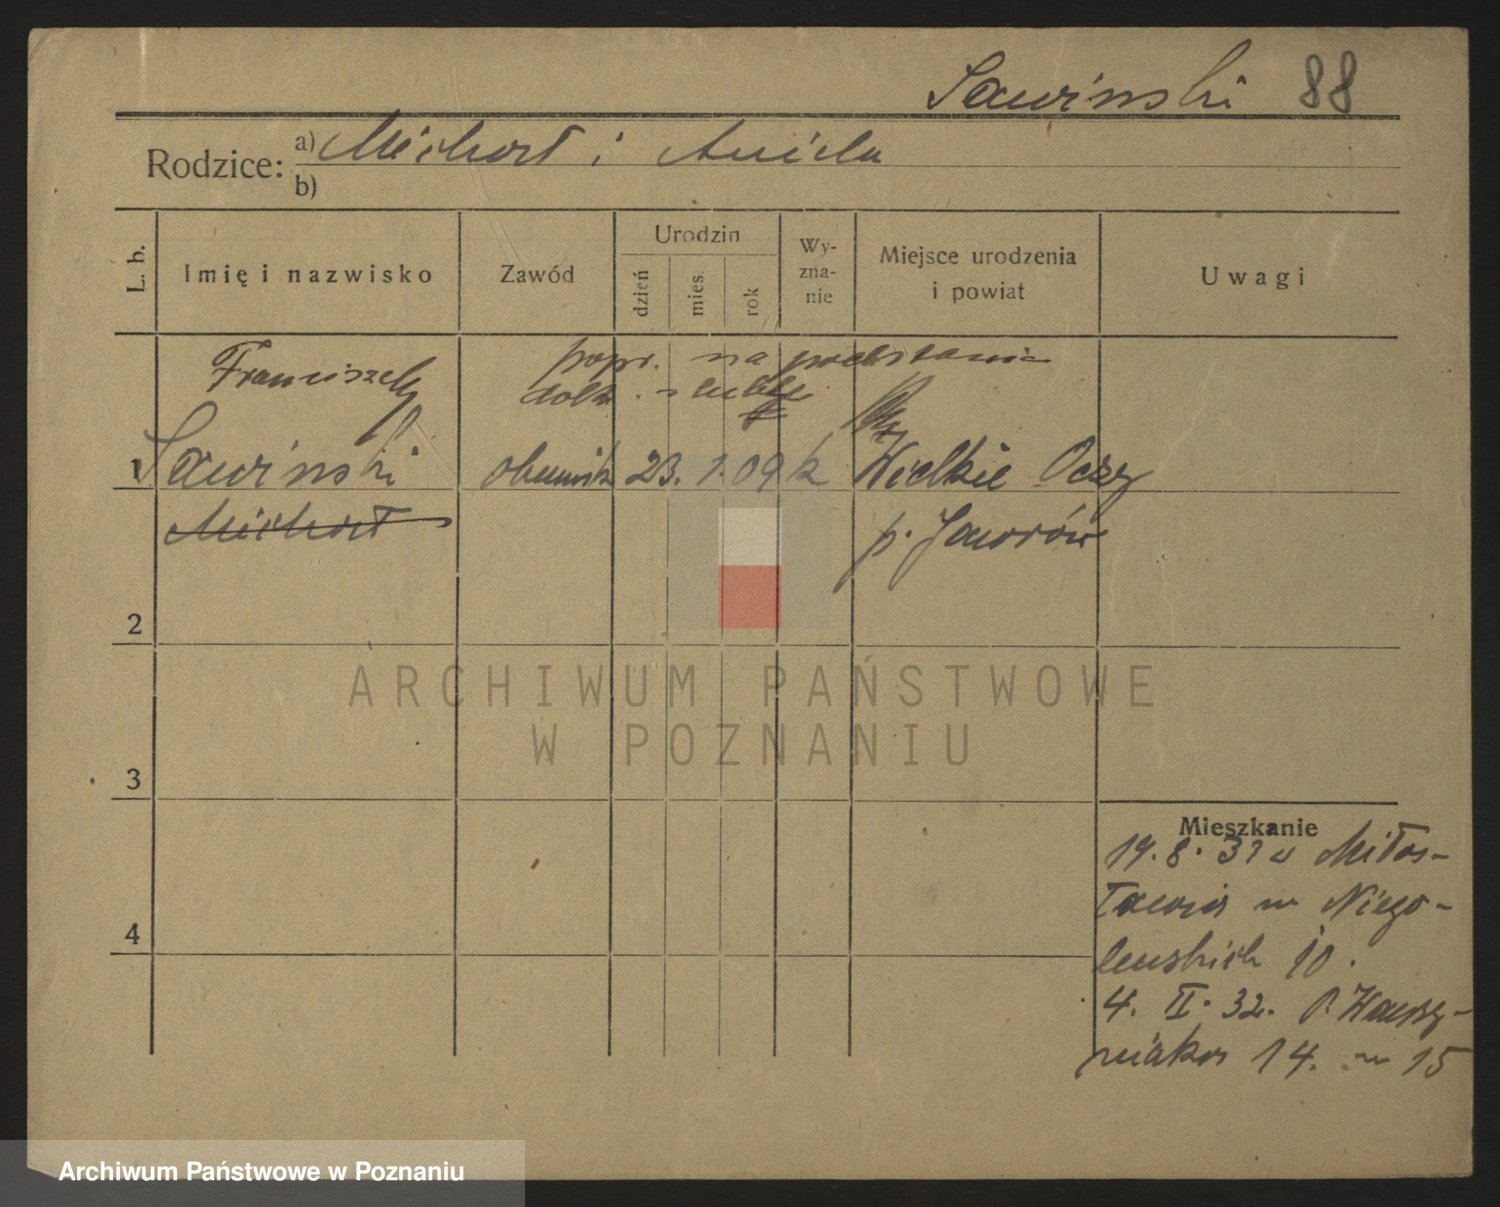 Sawinski 88
Rodzice: a) Michał i Aniela
b)
L. b. Imię i nazwisko Zawód Urodzin dzień mies. rok Wyznanie Miejsce urodzenia i powiat Uwagi
Franciszek popr. na podstawie
dok.
1 Sawinski 23. 1. 09 k Wielkie Oczy
Michał p. Jaworów
2
ARCHIWUM PAŃSTWOWE
W POZNANIU
3
Mieszkanie
19. 8. 31 Miło-
4
10.
4. II. 32.
14. 15
Archiwum Państwowe w Poznaniu